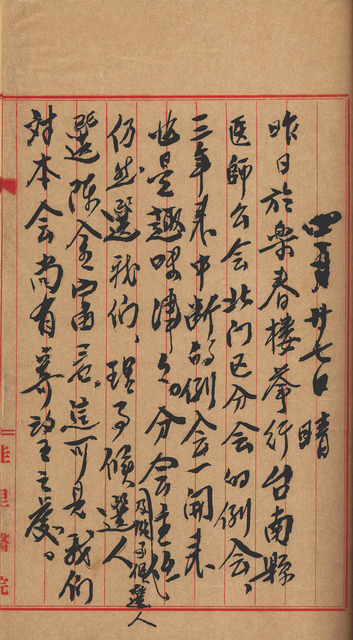 四月廿七日 晴
昨日於樂春樓舉行台南縣
医師公会北门区分会的例会、
三年来中断的例会一開来
也是趣味津々。分会主任
仍然選我们、理事候選人
及監事候選人
選陳、這可見我们
対本会尚有寄望之處。
佳里醫院